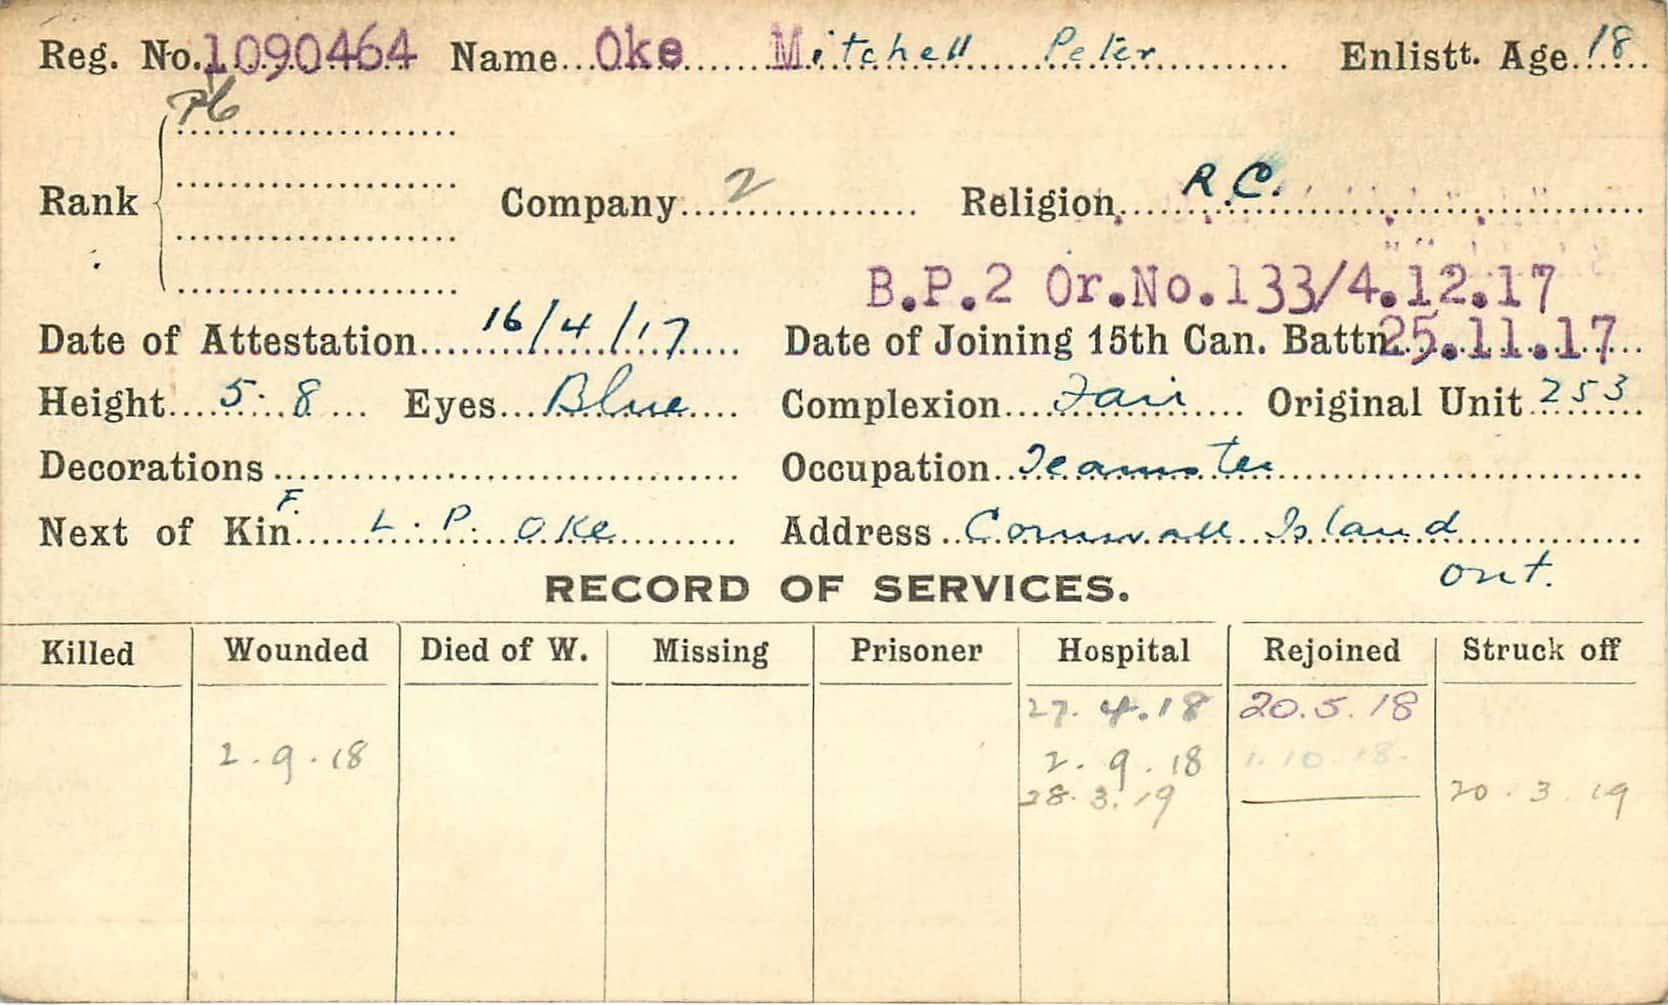 Reg. No. 1090464 Name Oke Mitchell Peter Enlistt. Age 18
Pte
Rank Company 2 Religion R.C.
B.P.2 Or.No.133/4.12.17
Date of Attestation 16/4/17 Date of Joining 15th Can. Battn. 25.11.17
Height 5.8 Eyes Blue Complexion Fair Original Unit 253
Decorations Occupation Teamster
F.
Next of Kin L.P. Oke Address Cornwall Island
Ont.
RECORD OF SERVICES.
Killed Wounded Died of W. Missing Prisoner Hospital Rejoined Struck off
27.4.18 20.5.18
2.9.18 2.9.18 1.10.18.
28.3.19 20.3.19